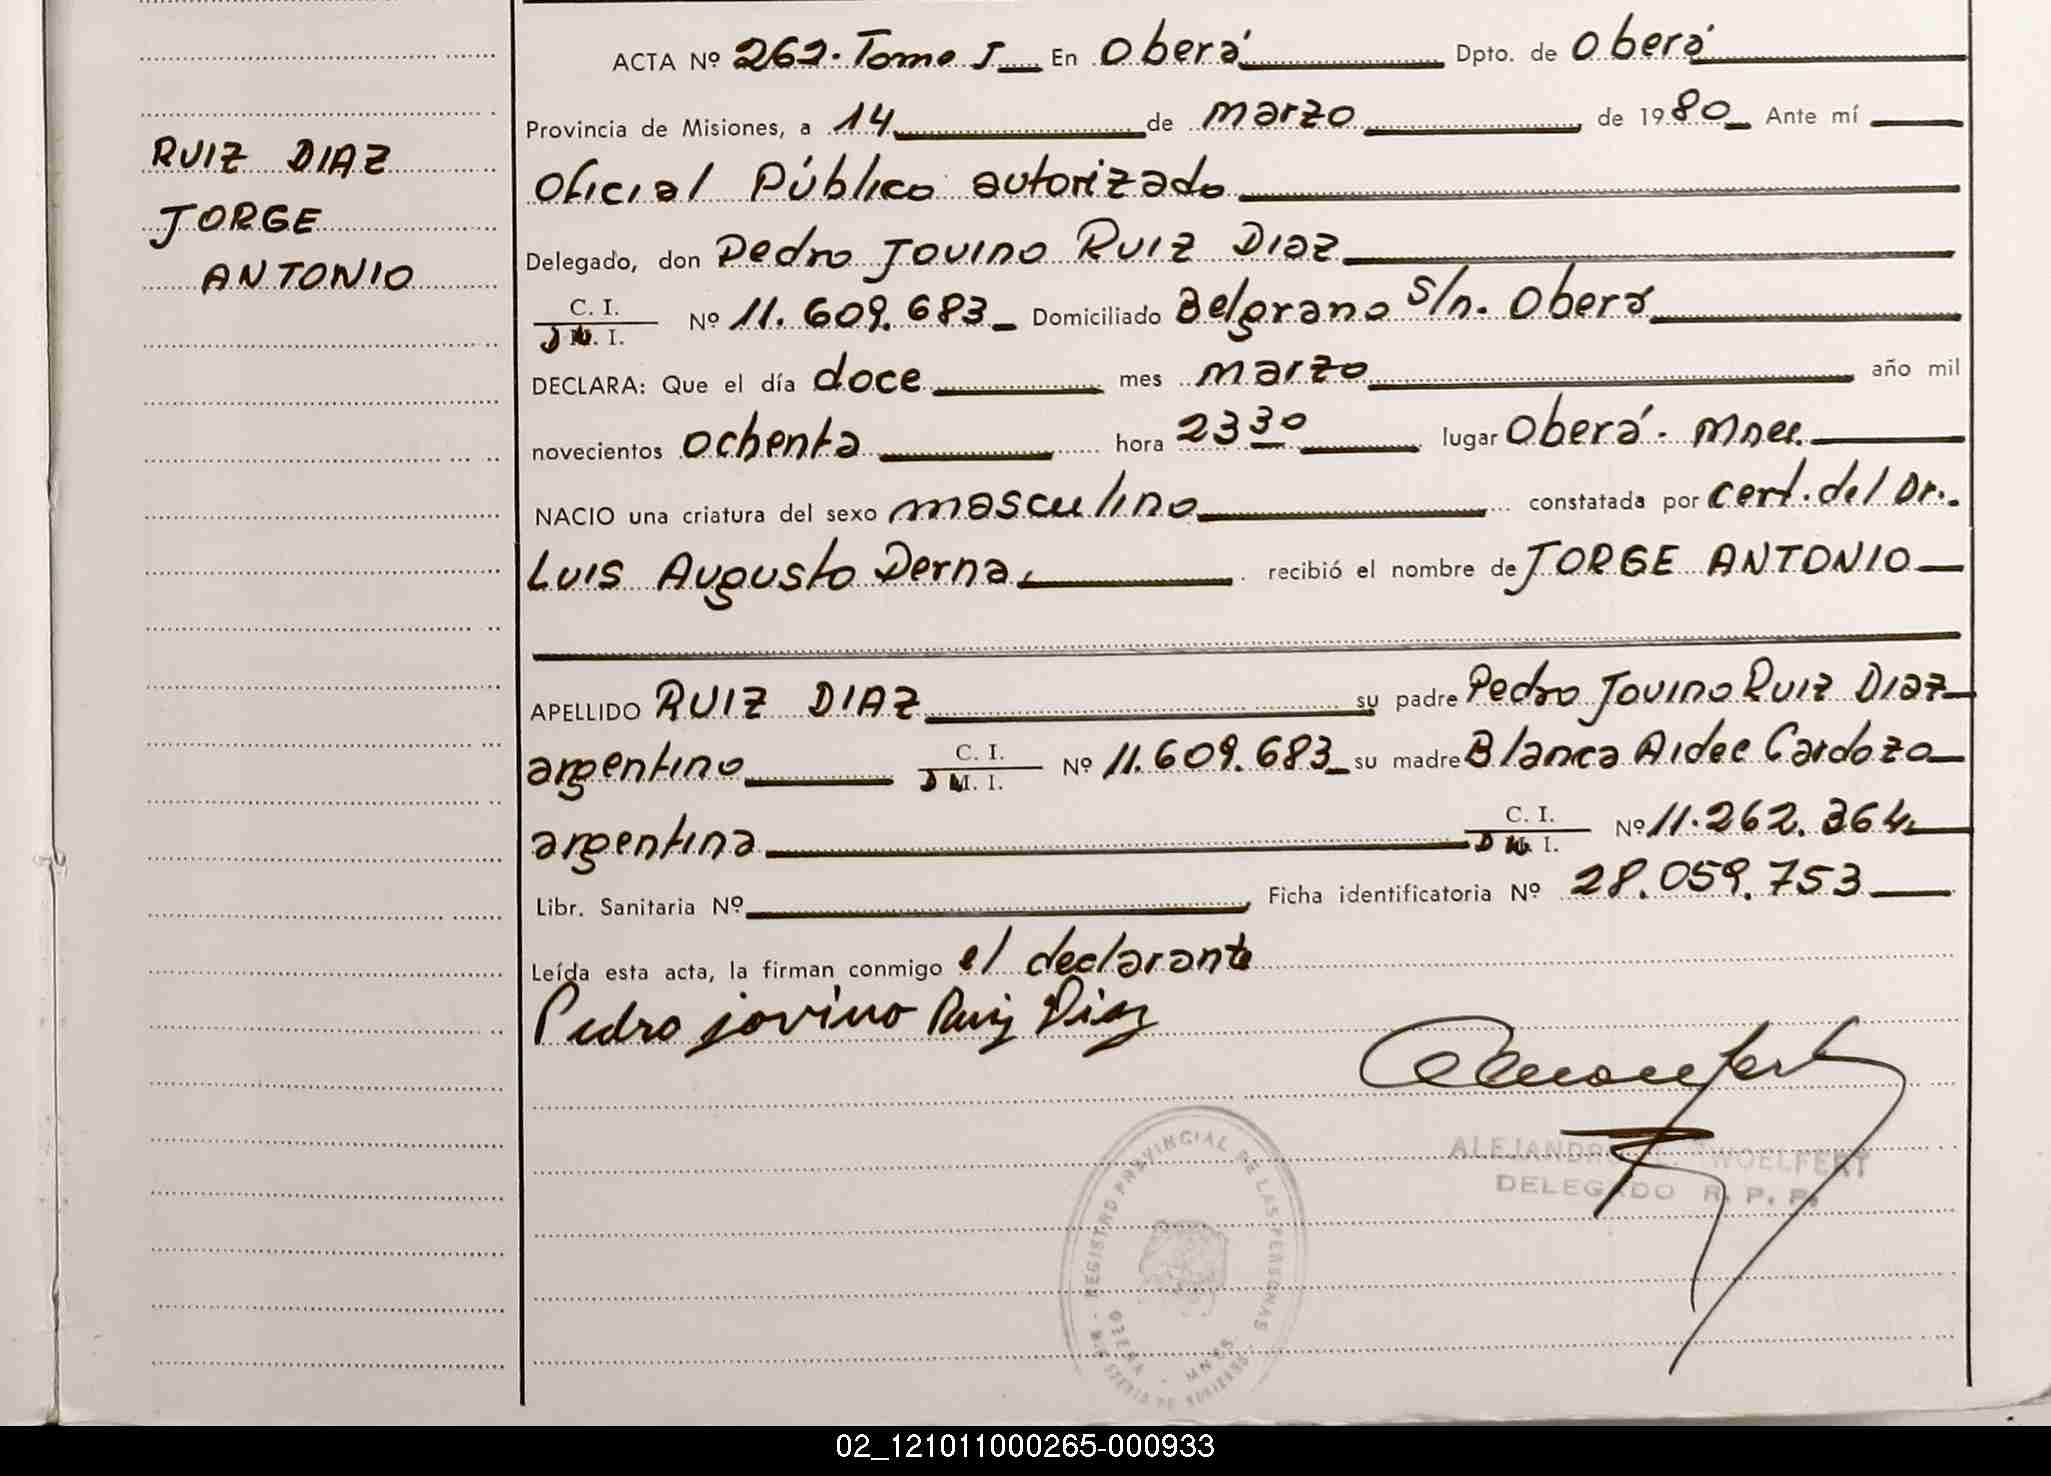 ACTA Nº 262. Tomo I En Oberá Dpto. de Oberá
Provincia de Misiones, a 14 de marzo de 1980 Ante mí
RUIZ DIAZ
JORGE
ANTONIO
Oficial Público autorizado
Delegado, don Pedro Jovino RUIZ DIAZ
C. I.
D M. I. Nº 11.609.683 Domiciliado Belgrano s/n. Oberá
DECLARA: Que el día doce mes marzo año mil
novecientos ochenta hora 23 30 lugar Oberá. Mnes.
NACIO una criatura del sexo masculino constatada por cert. del Dr.
Luis Augusto Derna, recibió el nombre de JORGE ANTONIO
APELLIDO RUIZ DIAZ su padre Pedro Jovino RUIZ DIAZ
argentino C. I. Nº 11.609.683 su madre Blanca Aidee Cardozo
D M. I.
argentina C. I. Nº 11.262.364
D M. I.
Libr. Sanitaria Nº Ficha identificatoria Nº 28.059.753
Leída esta acta, la firman conmigo el declarante
Pedro jovino Ruiz Diaz
REGISTRO PROVINCIAL DE LAS PERSONAS
OBERA - MNES.
ALEJANDRO WOELFERT
DELEGADO R. P. P.
02_121011000265-000933